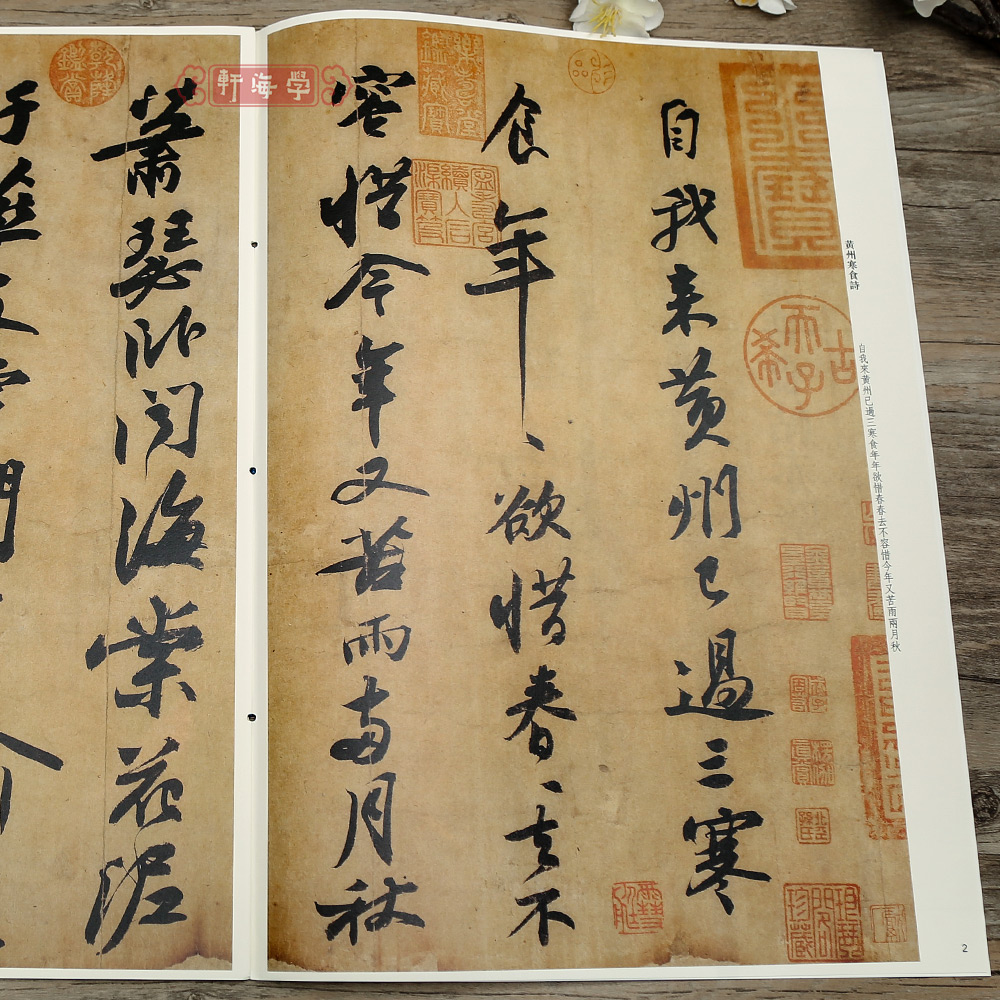 黃州寒食詩
自我來黃州已過三寒食年年欲惜春春去不容惜今年又苦雨兩月秋
自我来黄州已過三寒
食年、欲惜春、去不
容惜今年又苦雨兩月秋
蕭瑟卧聞海棠花泥
古希天子
乾隆鑑賞
軒海学
2